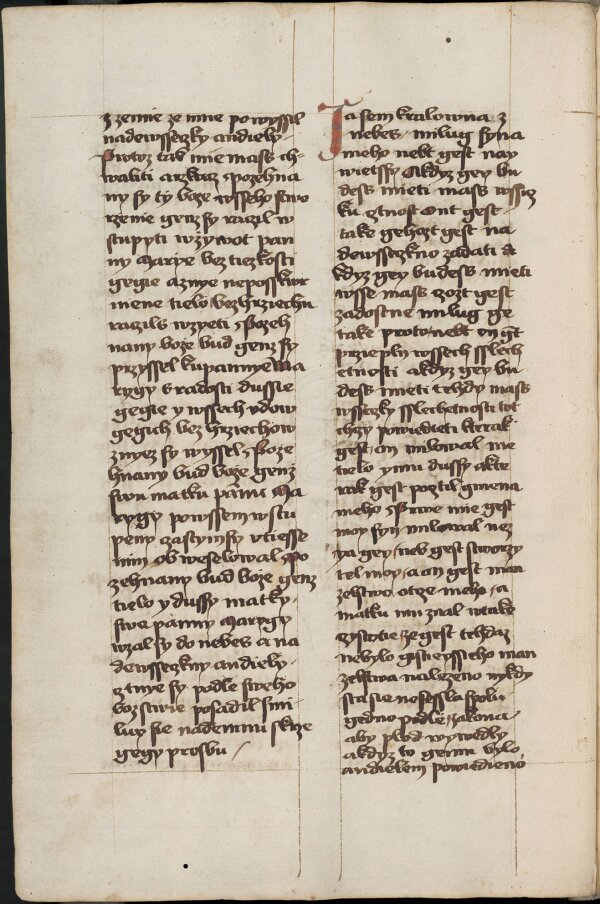 z zemie ze mne powyssil
nadewssecky andiely
Protoz tak mie mass ch-
waliti a rkucz Pozehna
ny sy ty boze wsseho stwo
rzenie genz sy raczil w
stupyti w zywot pan
ny Marye bez tiezkosti
gegie a z nye neposskwr
niene tielo bez hrziechu
raczils wzyeti Pozeh
nany boze bud genz sy
przyssel ku pannye ma
rygy s radosti dussie
gegie y wssech vdow
gegich bez hrziechow
z nyez sy wyssel Poze
hnany bud boze genz
swu matku pannu Ma
rygy po wssem wstu
peny czastym sy vtiesse
nim obweselowal Po
zehnany bud boze genz
tielo y dussy matky
swe panny Marygy
wzal sy do nebes a na
dewsseczkny andiely
cztnye sy podle sweho
bozstwie posadil smi
lug sie nademnu skrze
gegy prosbu
Ja sem kralowna z
nebes milug syna
meho nebt gest nay
wietssy a kdyz gey bu
dess mieti mass wssicz
ku cztnost ont gest
take gehozt gest na
dewsseczkno zadati a
kdyz gey budess mieti
wsse mass czozt gest
zadostne milug ge
take proto nebt on gt
przieplny wssech sslech
etnosti a kdyz gey bu
dess mieti tehdy mass
wsseczky sslechetnosti tot
chczy powiedieti kterak
gest on milowal me
tielo y mu dussy a kte
rak gest poctil gmena
meho Prwe mie gest
moy syn milowal nez
ya gey neb gest stworzy
tel moy a on gest man
zelstwo otcze meho a
matku mu znal w take
czystotie ze gest tehdaz
nebylo gistieyssieho man
zelstwa nalezeno nykdy
sta sie nesessla spolu
gedno podle zakona
aby plod wywedly
a kdyz to gemu bylo
andielem powiedieno